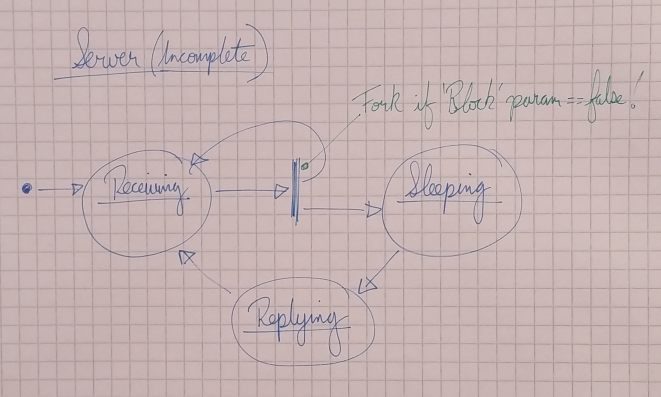 Server (Incomplete)
Fork if 'Block' param == false!
Receiving
Sleeping
Replying